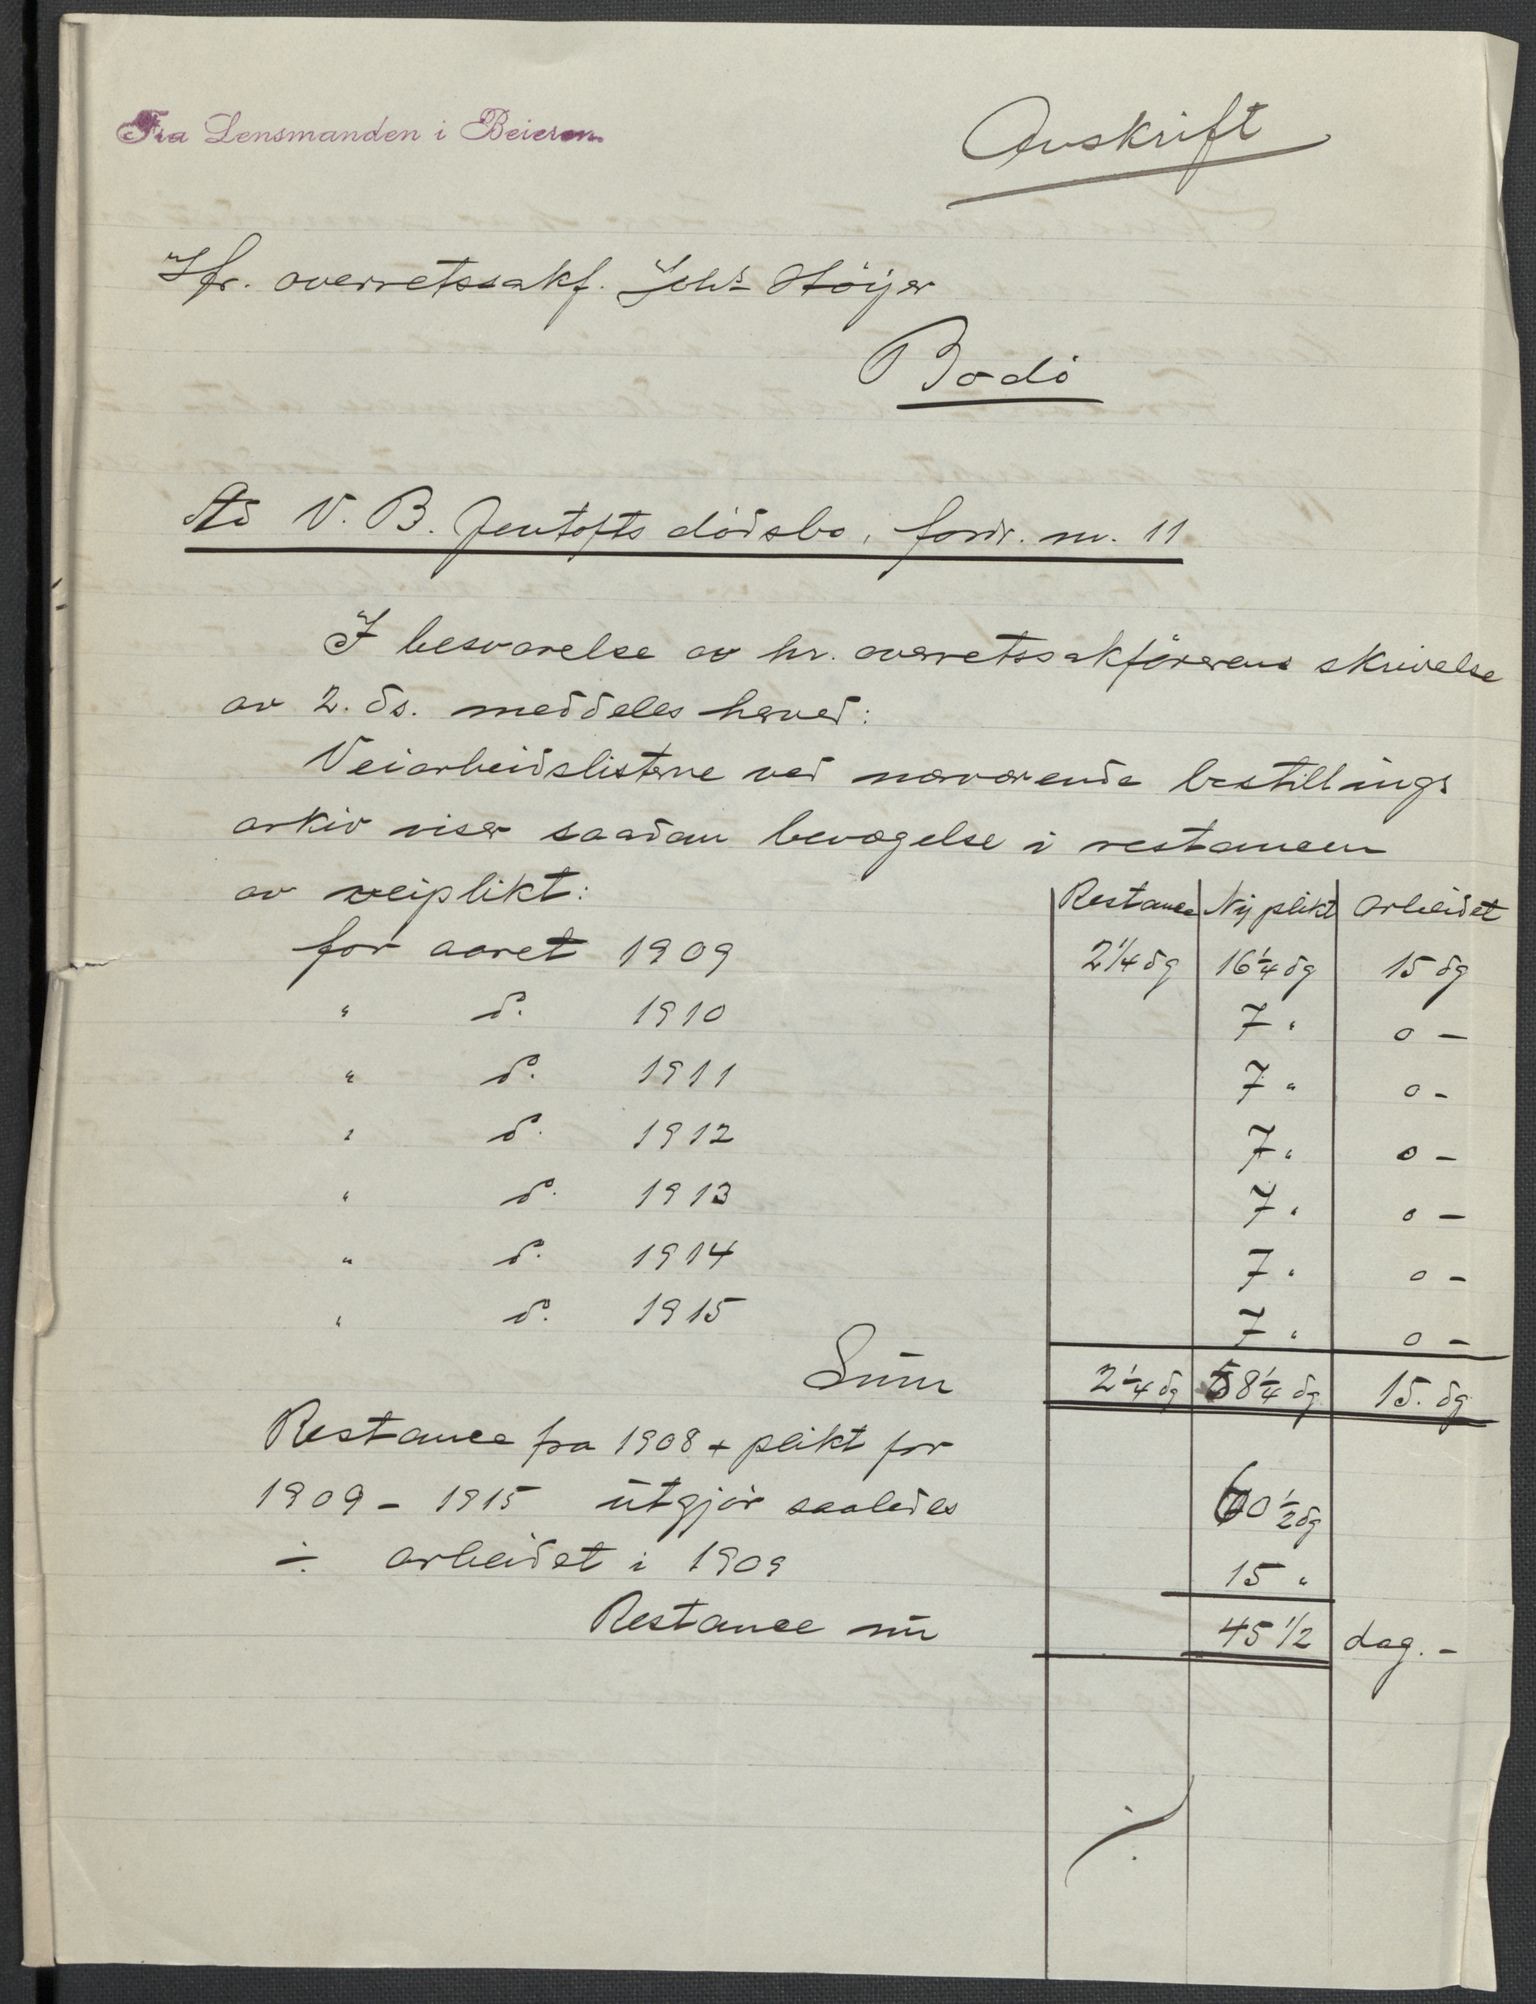 Fra Lensmanden i Beieren
Avskrift
Hr. overretssakf. Johs Höyer
Bodö
Ad V. B. Jentofts dödsbo, fordr. nr. 11
I besvarelse av hr. overretssakförerens skrivelse
av 2. ds. meddeles herved:
Veiarbeidslisterne ved nærværende bestillings
arkiv viser saadan bevægelse i restancen
av veiplikt:
Restance Ny plikt arbeidet
for aaret 1909 2 1/4 dg 16 1/4 dg 15 dg
" d. 1910 7 " 0 -
" d. 1911 7 " 0 -
" d. 1912 7 " 0 -
" d. 1913 7 " 0 -
" d. 1914 7 " 0 -
" d. 1915 7 " 0 -
Sum 2 1/4 dg 58 1/4 dg 15. dg
Restance fra 1908 + plikt for
1909 - 1915 utgjör saaledes 60 1/2 dg
÷ arbeidet i 1909 15 "
Restance nu 45 1/2 dag. -
./.